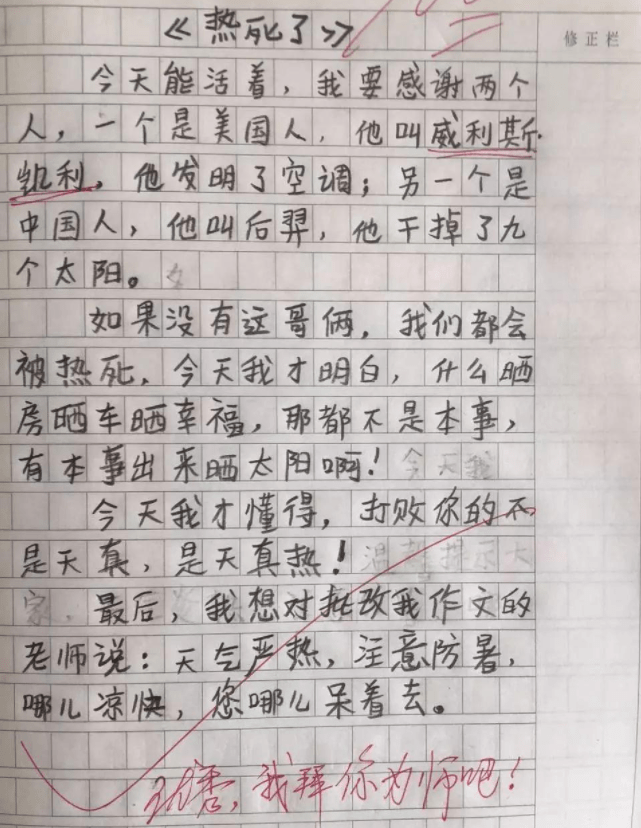 《热死了》
修正栏
今天能活着，我要感谢两个
人，一个是美国人，他叫威利斯·
凯利，他发明了空调；另一个是
中国人，他叫后羿，他干掉了九
个太阳。
如果没有这哥俩，我们都会
被热死，今天我才明白，什么晒
房晒车晒幸福，那都不是本事，
有本事出来晒太阳啊！今天我
今天我才懂得，打败你的不
是天真，是天真热！温馨提示大
家，最后，我想对批改我作文的
老师说：天气严热，注意防暑，
哪儿凉快，您哪儿呆着去。
我拜你为师吧！